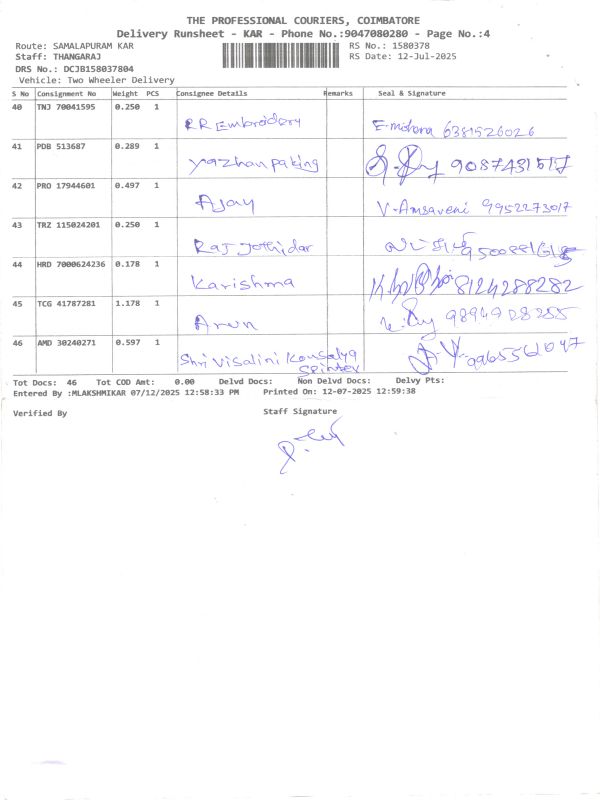 THE PROFESSIONAL COURIERS, COIMBATORE
Delivery Runsheet - KAR - Phone No.:9047080280 - Page No.:4
Route: SAMALAPURAM KAR RS No.: 1580378
Staff: THANGARAJ RS Date: 12-Jul-2025
DRS No.: DCJB158037804
Vehicle: Two Wheeler Delivery
S No Consignment No Weight PCS Consignee Details Remarks Seal & Signature
40 TNJ 70041595 0.250 1
RR Embroidery E-mohana 6381526026
41 PDB 513687 0.289 1
yazhan paking 9087431517
42 PRO 17944601 0.497 1
Ajay V-Amsaveni 9952273017
43 TRZ 115024201 0.250 1
Raj Jothidar
44 HRD 7000624236 0.178 1
Karishma 8124288282
45 TCG 41787281 1.178 1
Arun 9894928255
46 AMD 30240271 0.597 1
Shri Visalini Kousalya
Spintex
Tot Docs: 46 Tot COD Amt: 0.00 Delvd Docs: Non Delvd Docs: Delvy Pts:
Entered By :MLAKSHMIKAR 07/12/2025 12:58:33 PM Printed On: 12-07-2025 12:59:38
Verified By Staff Signature